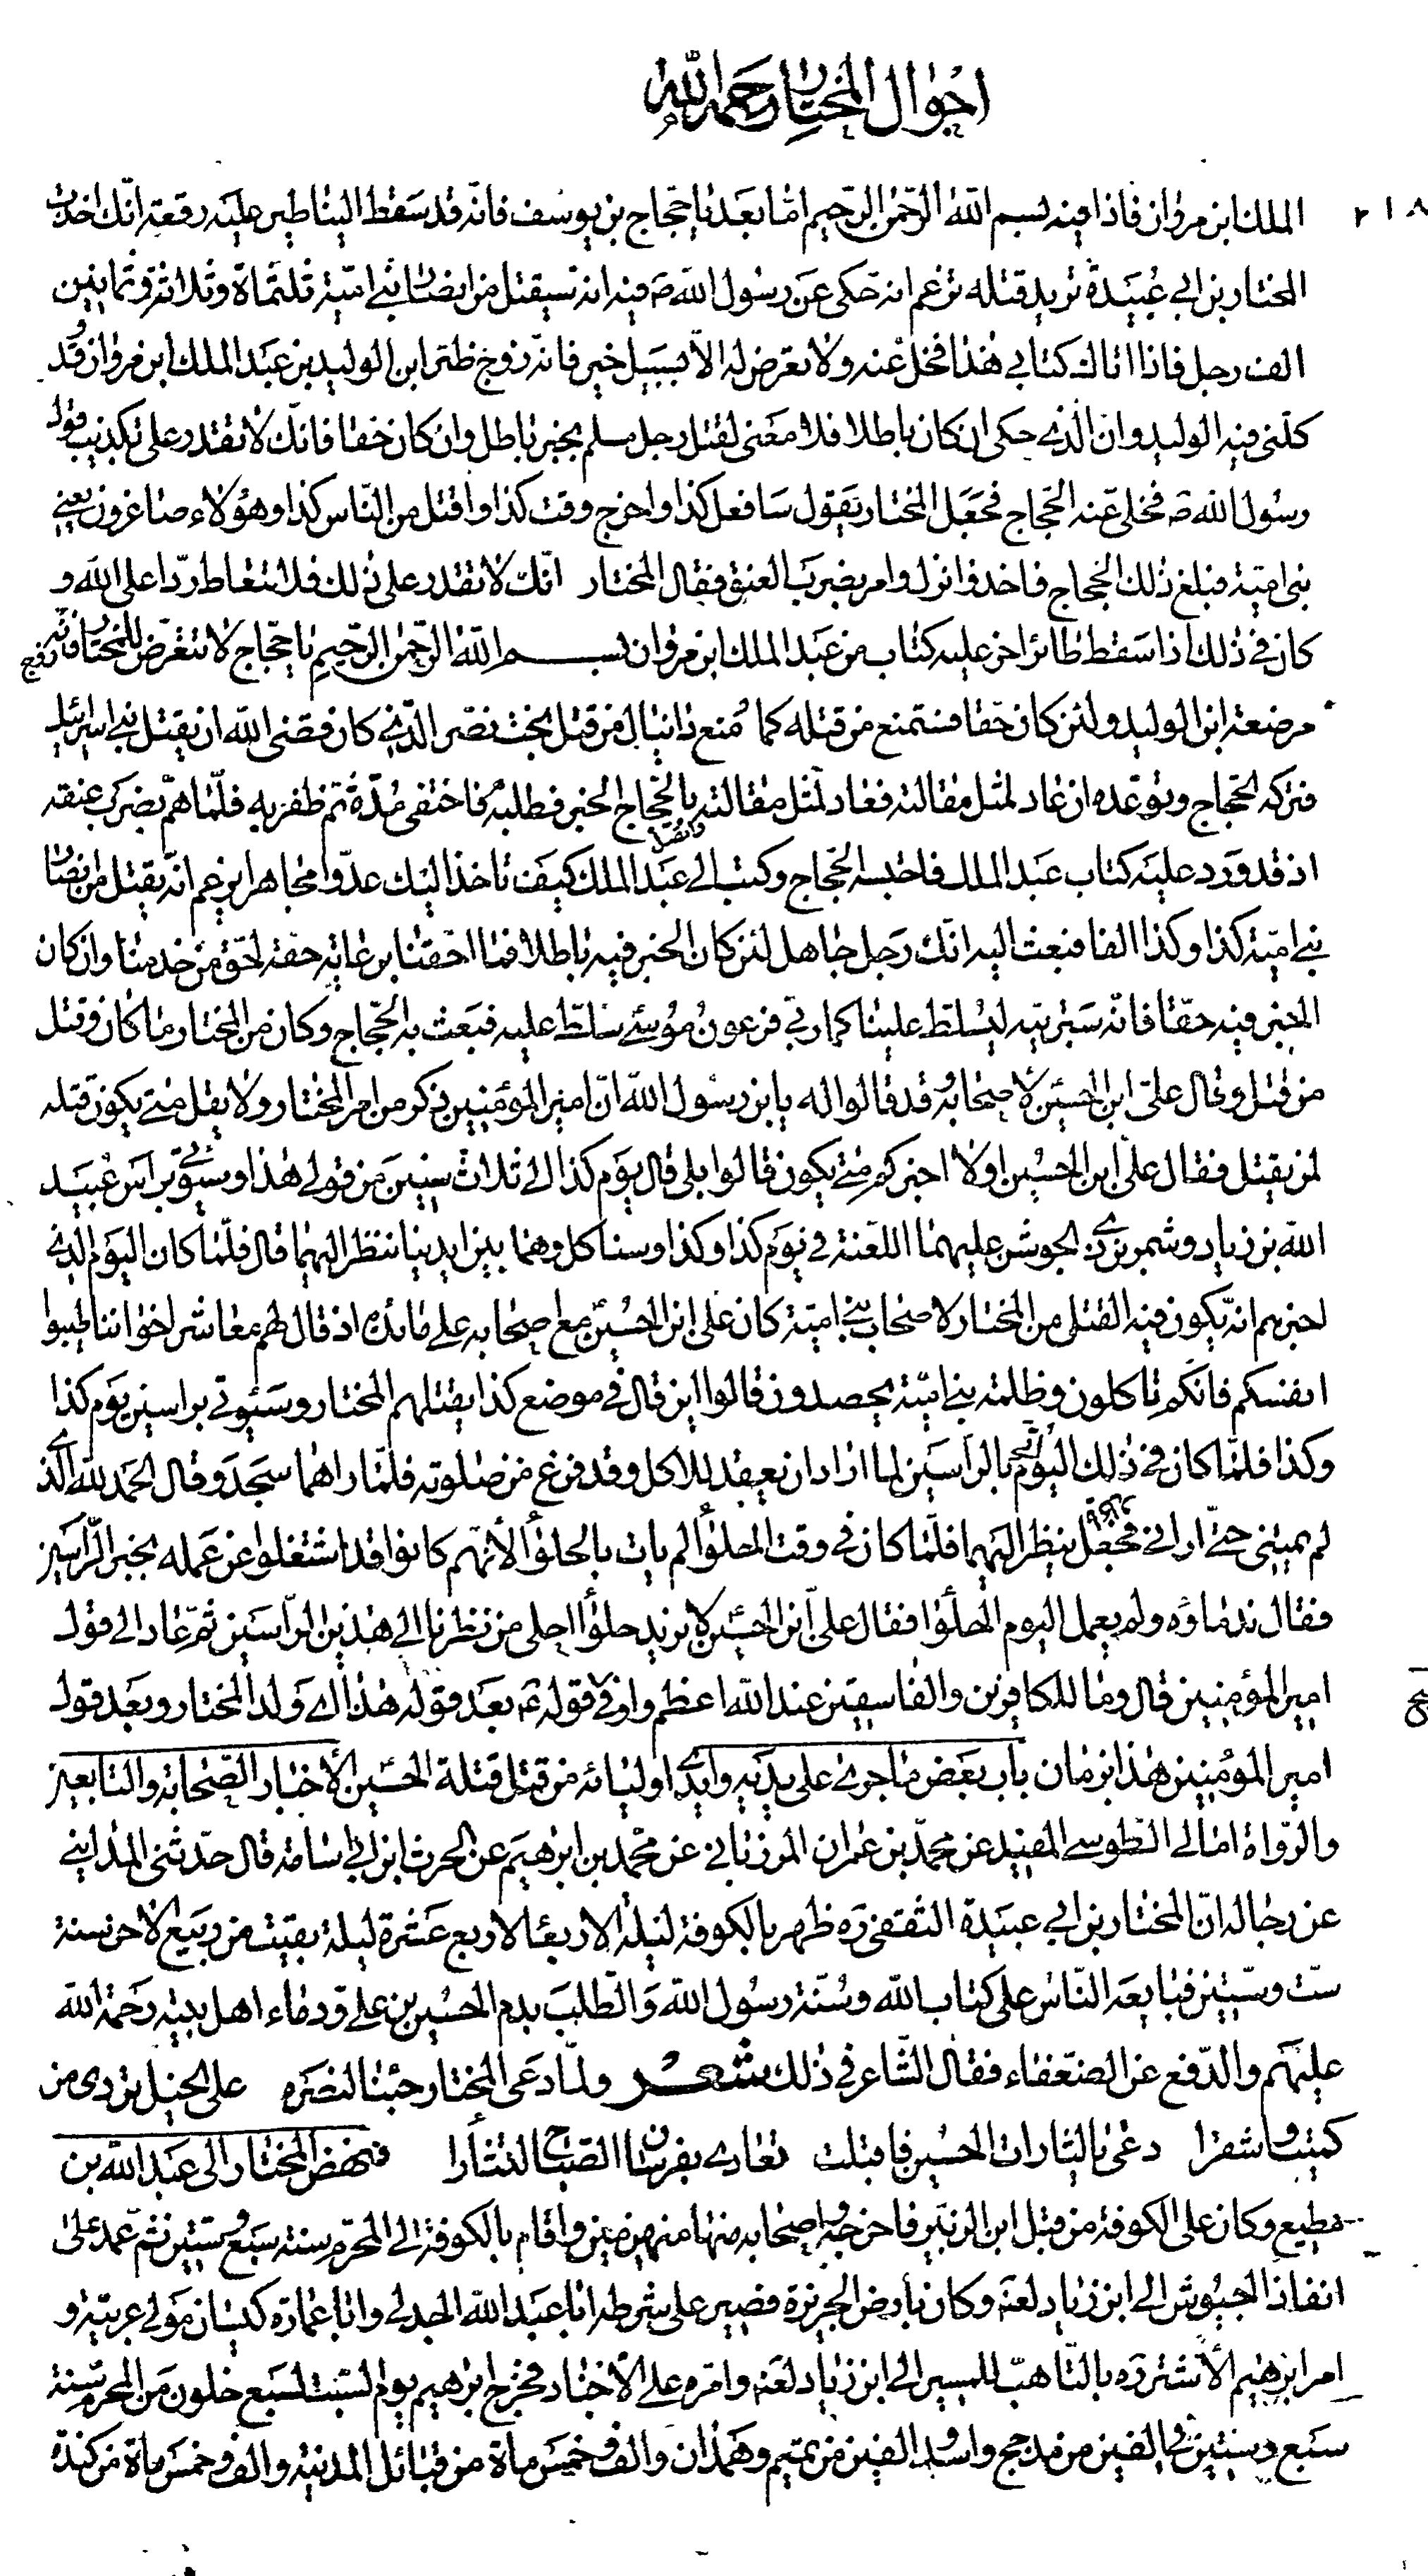 احوال المختار رحمه الله
٢١٨
الملك ابن مروان فاذا فيه بسم الله الرحمن الرحيم اما بعد يا حجاج بن يوسف فانه قد سقط الينا طير عليه رقعة انك اخذت
المختار بن ابي عبيدة تريد قتله تزعم انه حكى عن رسول الله ص فيه انه سيقتل من انصار بني امية ثلثماة وثلاثة وثمانين
الف رجل فاذا اتاك كتابي هذا فخل عنه ولا تعرض له الا بسبيل خير فانه زوج ظئر ابن الوليد بن عبد الملك ابن مروان وقد
كلمني فيه الوليد وان الذي حكى ان كان باطلا فلا معنى لقتل رجل مسلم بخبر باطل وان كان حقا فانك لا تقدر على تكذيب قول
رسول الله ص فخلى عنه الحجاج فجعل المختار يقول سافعل كذا واخرج وقت كذا واقتل من الناس كذا وهؤلاء صاغرون يعني
بني امية فبلغ ذلك الحجاج فاخذ وانزل وامر بضرب العنق فقال المختار انك لا تقدر على ذلك فلا تتعاط ردا على الله و
كان في ذلك اذا سقط طائر اخر عليه كتاب من عبد الملك ابن مروان بسم الله الرحمن الرحيم يا حجاج لا تتعرض للمختار فانه زوج
مرضعة ابن الوليد ولئن كان حقا فستمنع من قتله كما منع دانيال من قتل بخت نصر الذي كان قضى الله ان يقتل بني اسرائيل
فتركه الحجاج وتوعده ان عاد لمثل مقالته فعاد لمثل مقالته واتصل بالحجاج الخبر فطلبه فاختفى مدة ثم ظفر به فلما هم بضرب عنقه
اذ قد ورد عليه كتاب عبد الملك فاحتبسه الحجاج وكتب الى عبد الملك كيف تاخذ اليك عدوا مجاهرا يزعم انه يقتل من انصار
بني امية كذا وكذا الفا فبعث اليه انك رجل جاهل لئن كان الخبر فيه باطلا فما احقنا برعاية حقه لحق من خدمنا وان كان
الخبر فيه حقا فانه سنربيه ليسلط علينا كما ربى فرعون موسى سلط عليه فبعث به الحجاج وكان من المختار ما كان وقتل
من قتل وقال علي ابن الحسين لاصحابه وقد قالوا له يا بن رسول الله ان امير المؤمنين ذكر من امر المختار ولا يقل متى يكون قتله
لمن يقتل فقال علي ابن الحسين اولا اخبركم متى يكون قالوا بلى قال يوم كذا الى ثلاث سنين من قولي هذا وسيؤتى براس عبيد
الله بن زياد وشمر بن ذي الجوشن عليهما اللعنة في يوم كذا وكذا وسناكل وهما بين ايدينا ننظر اليهما قال فلما كان اليوم الذي
اخبرهم انه يكون فيه القتل من المختار لاصحاب بني امية كان علي ابن الحسين مع اصحابه على مائدة اذ قال لهم معاشر اخواننا طيبوا
انفسكم فانكم تاكلون وظلمة بني امية يحصدون قالوا اين قال في موضع كذا يقتلهم المختار وسيؤتى براسين يوم كذا
وكذا فلما كان في ذلك اليوم اتي بالراسين لما اراد ان يقعد للاكل وقد فرغ من صلوته فلما راهما سجد وقال الحمد لله الذي
لم يمتني حتى اراني فجعل ينظر اليهما فلما كان في وقت الحلوا لم يات بالحلوا لانهم كانوا قد اشتغلوا عن عمله بخبر الراسين
فقال ندماؤه ولم يعمل اليوم الحلوا فقال علي ابن الحسين لا نريد حلوا احلى من نظرنا الى هذين الراسين ثم عاد الى قول
امير المؤمنين قال وما للكافرين والفاسقين عند الله اعظم واوفى قوله ع بعد قوله هذا اي ولد المختار وبعد قول
امير المؤمنين هذا بزمان باب بعض ما جرى على يديه وايدي اوليائه من قتل قتلة الحسين الاخبار الصحابة والتابعين
والرواة امالي الطوسي المفيد عن محمد بن عمران المرزباني عن محمد بن ابرهيم عن الحرث ابن ابي اسامة قال حدثني المدايني
عن رجاله ان المختار بن ابي عبيدة الثقفي ره ظهر بالكوفة ليلة الاربعا لاربع عشرة ليلة بقيت من ربيع الاخر سنة
ست وستين فبايعه الناس على كتاب الله وسنة رسول الله والطلب بدم الحسين بن علي ودماء اهل بيته رحمة الله
عليهم والدفع عن الضعفاء فقال الشاعر في ذلك شعر ولما دعى المختار جئنا لنصره على الخيل تردى من
كميت واشقرا دعى بالثارات الحسين فاقبلت تعادي بفرسان الصباح لتثأرا فنهض المختار الى عبد الله بن
مطيع وكان على الكوفة من قبل ابن الزبير فاخرجه واصحابه منها منهزمين واقام بالكوفة الى المحرم سنة سبع وستين ثم عمد على
انفاذ الجيوش الى ابن زياد لعنه وكان بارض الجزيرة فصير على شرطه ابا عبد الله الجدلي وابا عمارة كيسان مولى عربية و
امر ابرهيم الاشتر ره بالتاهب للمسير الى ابن زياد لعنه وامره على الاجناد فخرج ابرهيم يوم السبت لسبع خلون من المحرم سنة
سبع وستين في الفين من مذحج واسد والفين من تميم وهمدان والف وخمس ماة من قبائل المدينة والف وخمس ماة من كندة